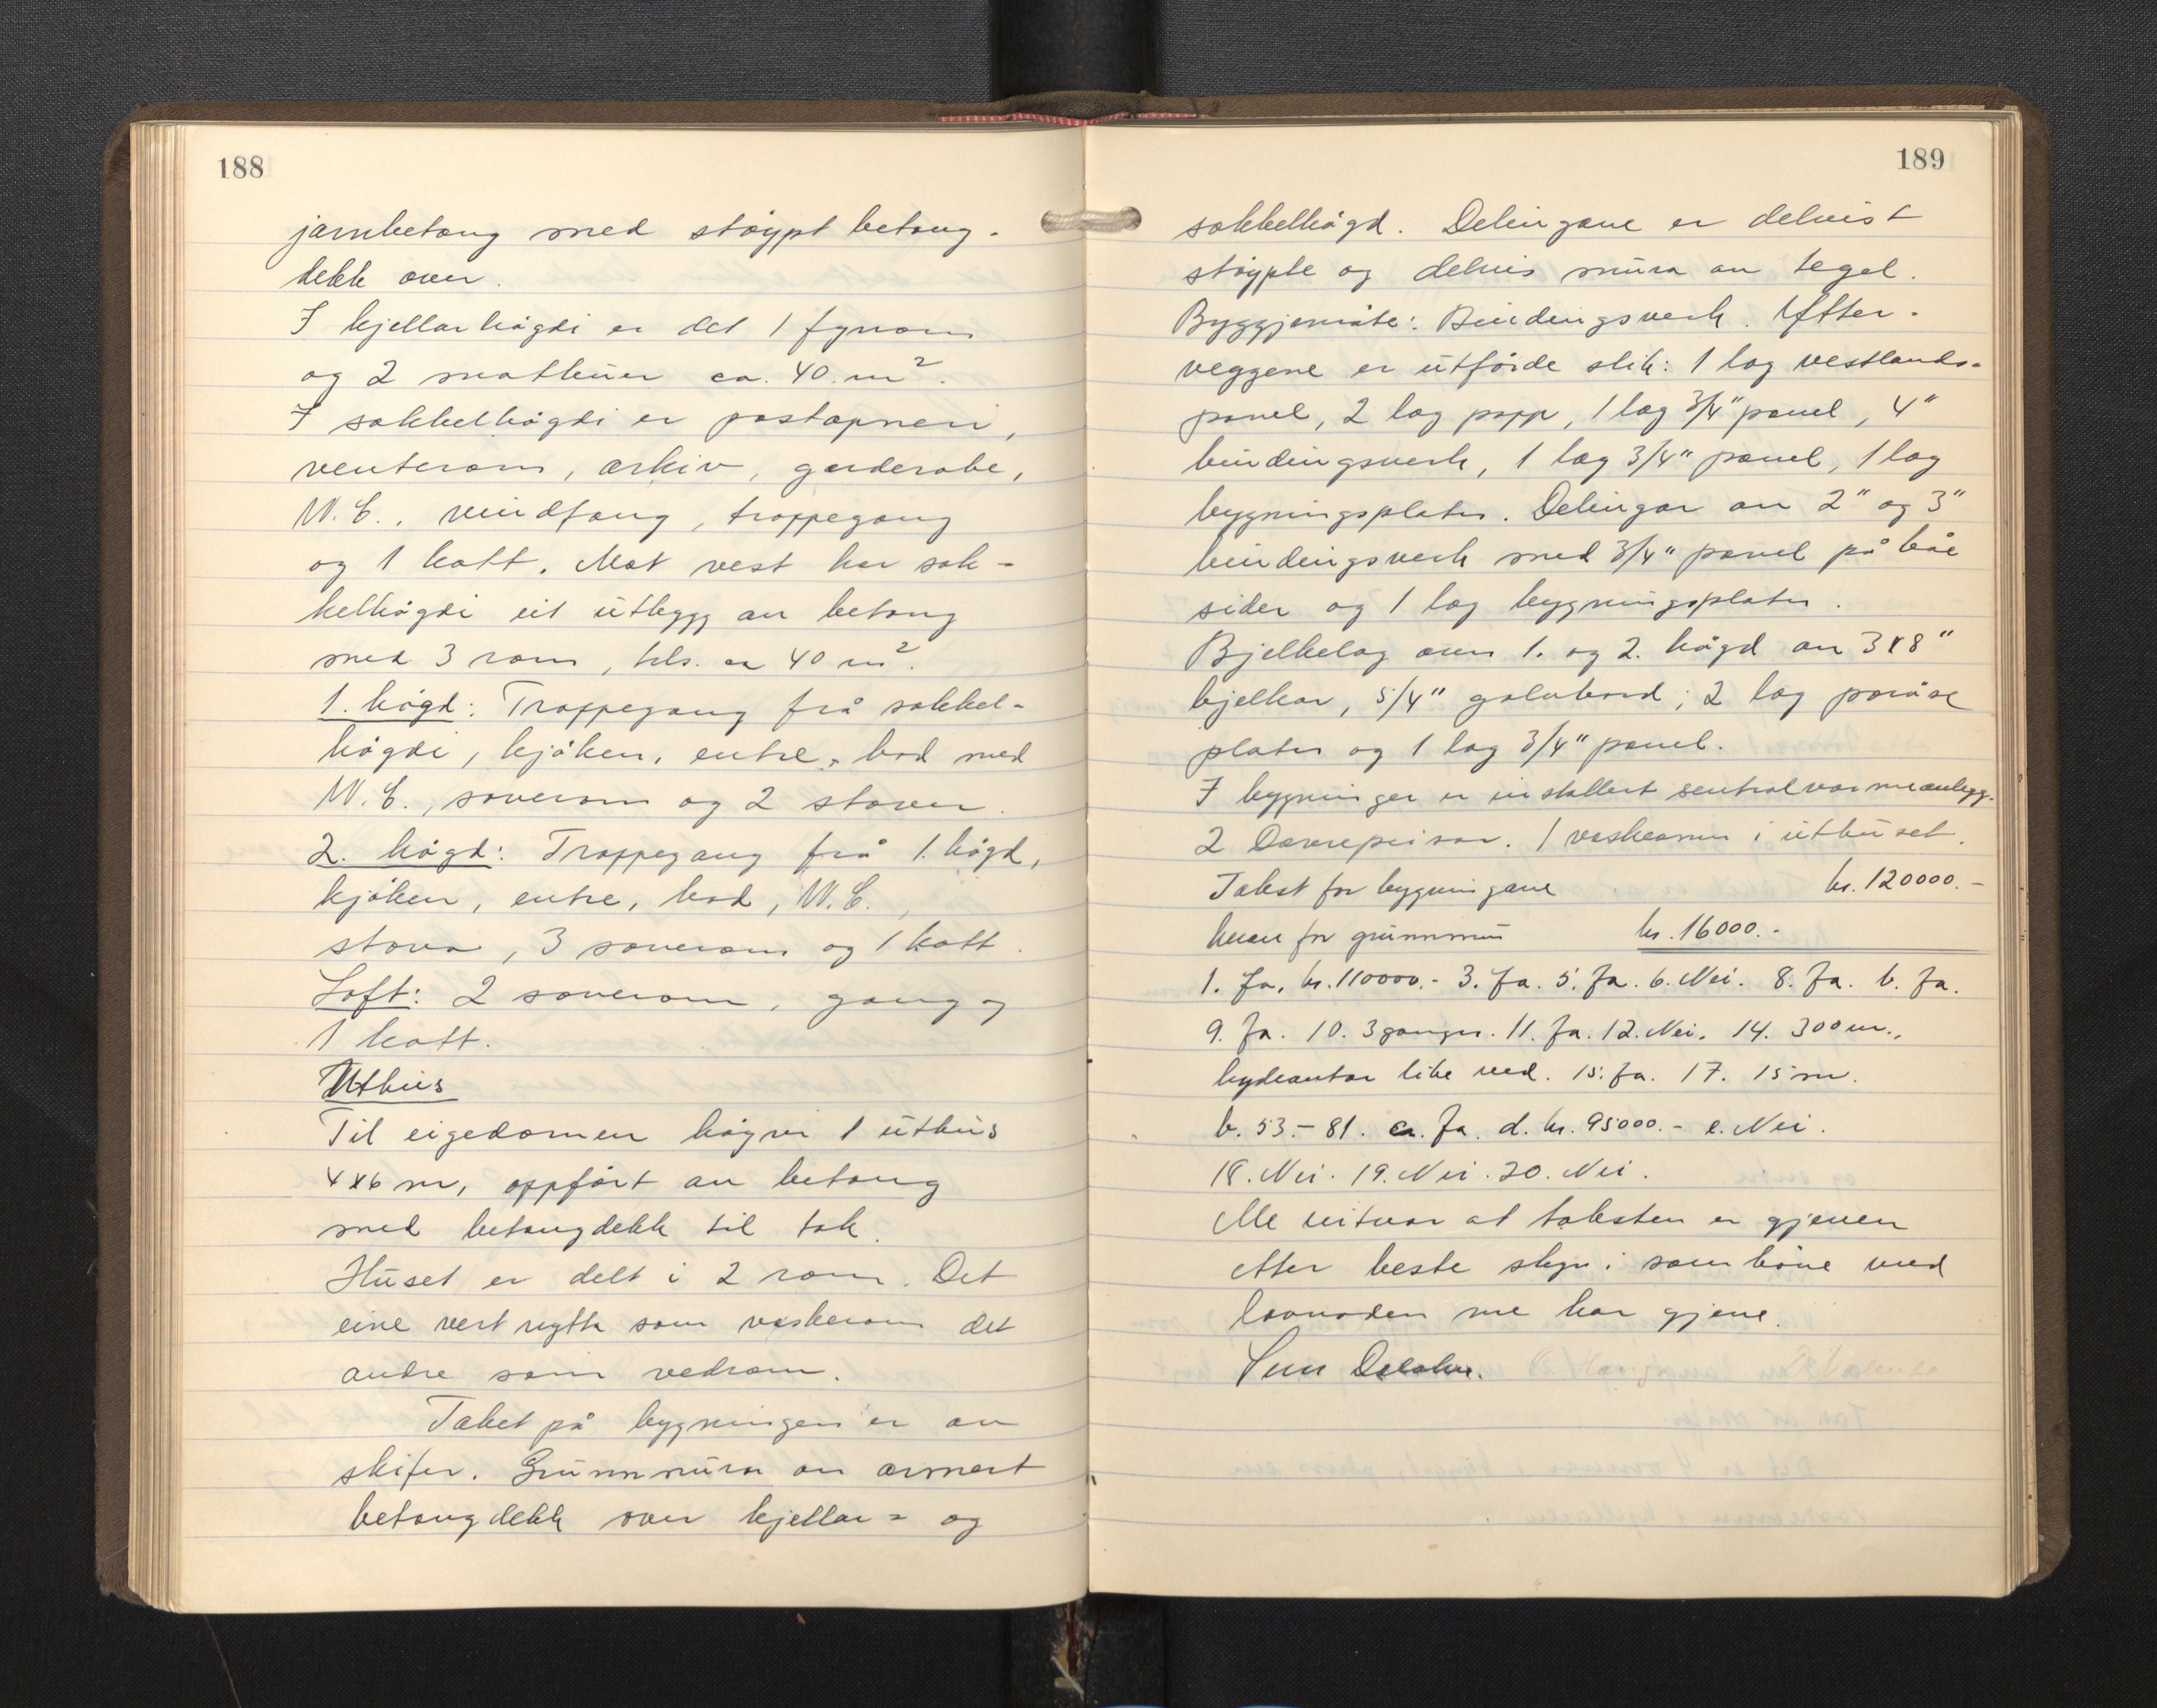 188
jarnbetong med støypt betong-
dekk over.
I kjellarhøgdi er det 1 fyrrom
og 2 matbuer ca. 40 m².
I sokkelhøgdi er postopneri,
venterom, arkiv, garderobe,
W.C., vindfang, trappegang
og 1 kott. Mot vest har sok-
kelhøgdi eit utbygg av betong
med 3 rom, tils. ca 40 m².
1. høgd: Trappegang frå sokkel-
høgdi, kjøken, entre, bad med
W.C., soverom og 2 stover.
2. høgd: Trappegang frå 1. høgd,
kjøken, entre, bad, W.C.,
stova, 3 soverom og 1 kott.
Loft: 2 soverom, gang og
1 kott.
Uthus
Til eigedomen høyrer 1 uthus
4x6 m, oppført av betong
med betongdekk til tak.
Huset er delt i 2 rom. Det
eine vert nytta som vaskerom det
andre som vedrom.
Taket på bygningen er av
skifer. Grunnmura av armert
betongdekk over kjellar- og
189
sokkelhøgd. Delingane er delvist
støypte og delvis mura av tegel.
Byggjemåte: Bindingsverk. Ytter-
veggene er utførde slik: 1 lag vestlands-
panel, 2 lag papp, 1 lag 3/4" panel, 4"
bindingsverk, 1 lag 3/4" panel, 1 lag
bygningsplater. Delingar av 2" og 3"
bindingsverk med 3/4" panel på båe
sider og 1 lag bygningsplater.
Bjelkelag over 1. og 2. høgd av 3x8"
bjelkar, 5/4" golvbord, 2 lag porøse
plater og 1 lag 3/4" panel.
I bygninger er installert sentralvarmeanlegg.
2 Dovrepeisar. 1 vaskeomn i uthuset.
Takst for bygningane kr. 120000.-
herav for grunnmur kr. 16000.-
1. Ja, kr. 110000.- 3. Ja. 5. Ja. 6. Nei. 8. Ja. b. Ja.
9. Ja. 10. 3 ganger. 11. Ja. 12. Nei. 14. 300 m.,
hydrantar like ved. 15. Ja. 17. 15 m.
b. 53.- 81. c. Ja. d. kr. 95000.- e. Nei.
18. Nei. 19. Nei. 20. Nei.
Me vitnar at taksten er gjeven
etter beste skyn i samhøve med
lovnaden me har gjeve.